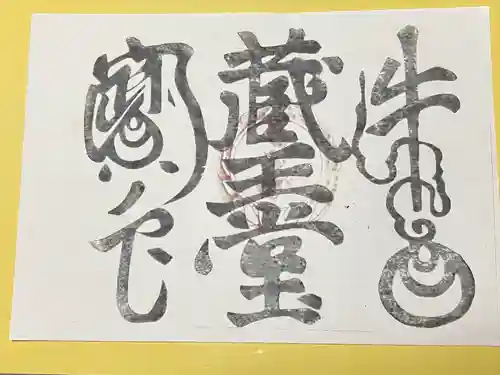 牛玉
蔵王堂
寶印